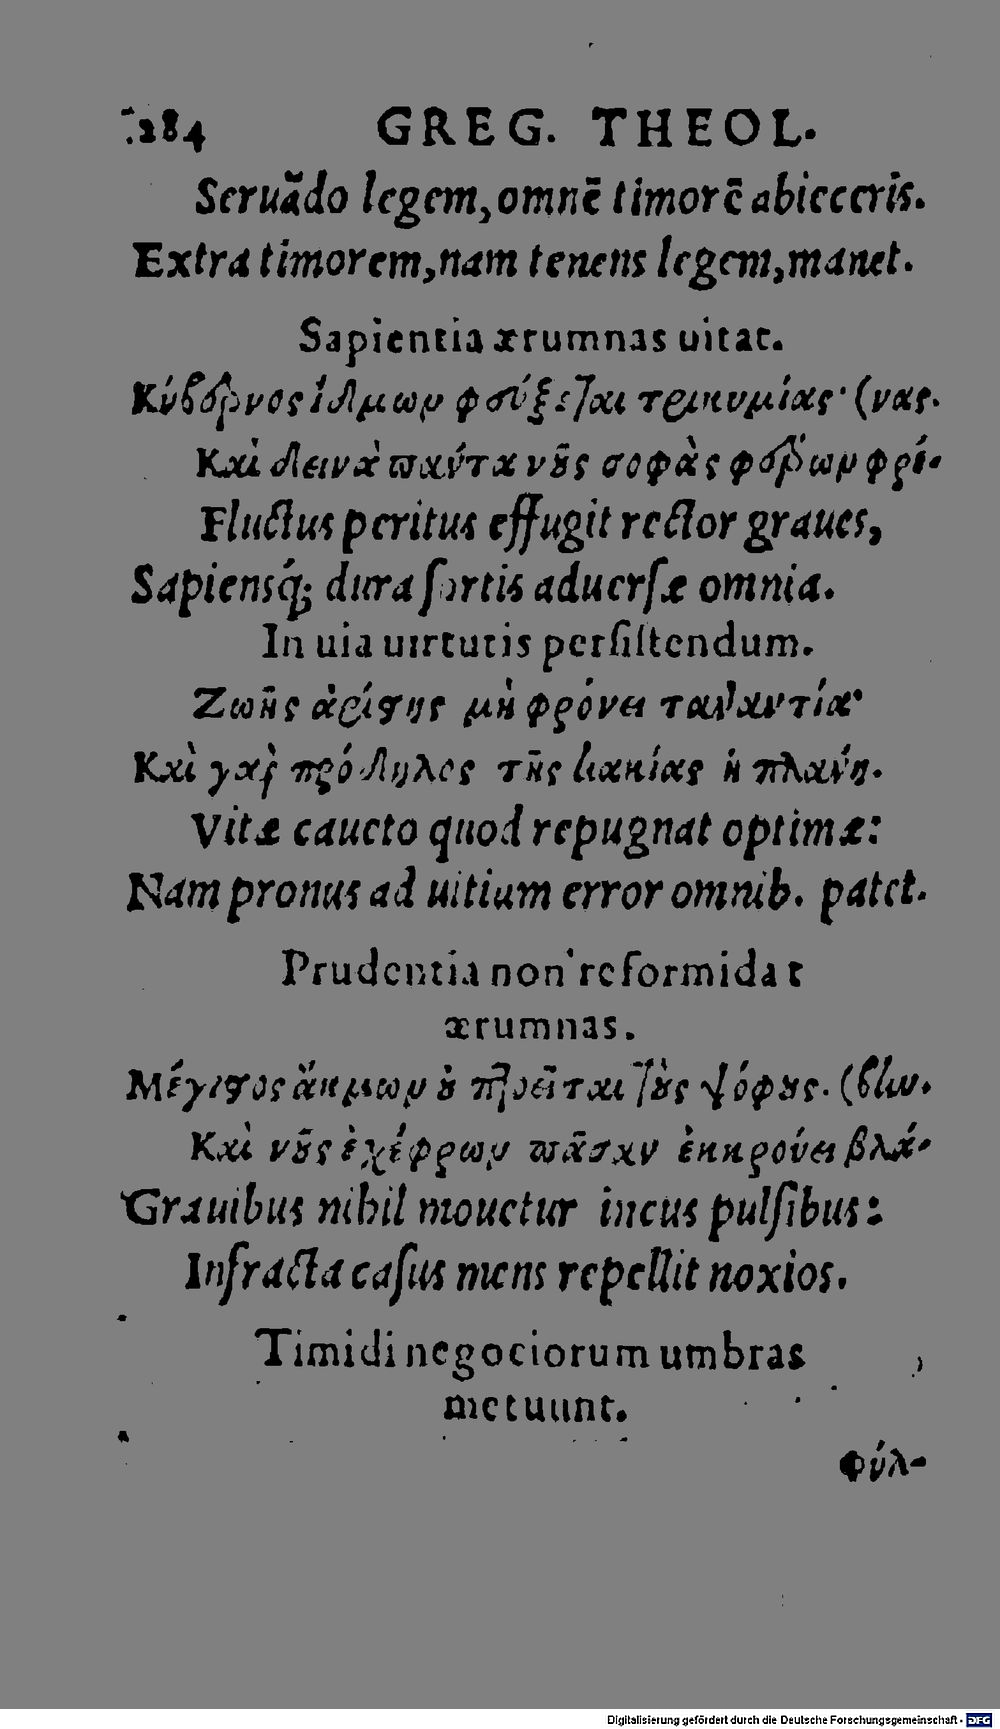 284 GREG. THEOL.
Seruãdo legem, omnẽ timorẽ abieceris.
Extra timorem, nam tenens legem, manet.
Sapientia ærumnas uitat.
Κύβερνος ἴδμων φεύξεται τρικυμίας· (νας.
Καὶ δεινὰ πάντα νοῦς σοφὰς φέρων φρέ-
Fluctus peritus effugit rector graues,
Sapiensq́; dura sortis aduersæ omnia.
In uia uirtutis persistendum.
Ζωῆς ἀρίστης μὴ φρόνει ταναντία·
Καὶ γὰρ πρόδηλος τῆς κακίας ἡ πλάνη.
Vitæ caueto quod repugnat optimæ:
Nam pronus ad uitium error omnib. patet.
Prudentia non reformidat
ærumnas.
Μέγιστος ἄκμων οὐ πτοεῖται τοὺς ψόφους. (βίων.
Καὶ νοῦς ἐχέφρων πᾶσαν ἐκκρούει βλά-
Grauibus nihil mouetur incus pulsibus:
Infracta casus mens repellit noxios.
Timidi negociorum umbras
metuunt.
Φύλ-
Digitalisierung gefördert durch die Deutsche Forschungsgemeinschaft - DFG